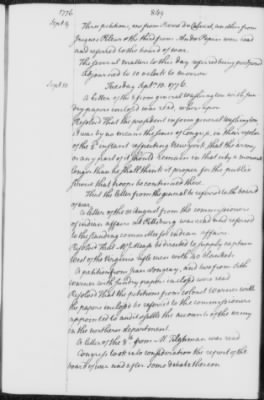 1776.
344
Sept 9
Three petitions, one from Pierre du Calvet, another from
Jacques Pelion & the third from Andw Pepin were read
and referred to the board of war.
The several matters to this day referred being postponed
Adjourned to 10 o clock to morrow
Sept 10
Tuesday Sept 10. 1776.
A letter of the 8 from general Washington with sundry papers enclosed was read, whereupon
Resolved That the president inform general Washington
it was by no means the sense of Congress in their resolve
of the 3d instant respecting New york, that the army
or any part of it should remain in that city a moment
longer than he shall think it proper for the public
service that troops be continued there.
That the letter from the general be referred to the board
of war.
A letter of the august from the commissioners
of indian affairs at Pittsburg was read and referred
to the standing committee for indian affairs.
Resolved That Mr Mease be directed to supply captain
West of the Virginia rifle men with 40 blankets.
A petition from Jean and two from Seth
Warner with sundry papers enclosed was read
Resolved That the petitions from colonel Warner with
the papers enclosed be referred to the commissioners
appointed to audit & settle the accounts of the army
in the northern department.
A letter of the 8th from M Tilghman was read
Congress took into consideration the report of the
board of war and after some debate thereon